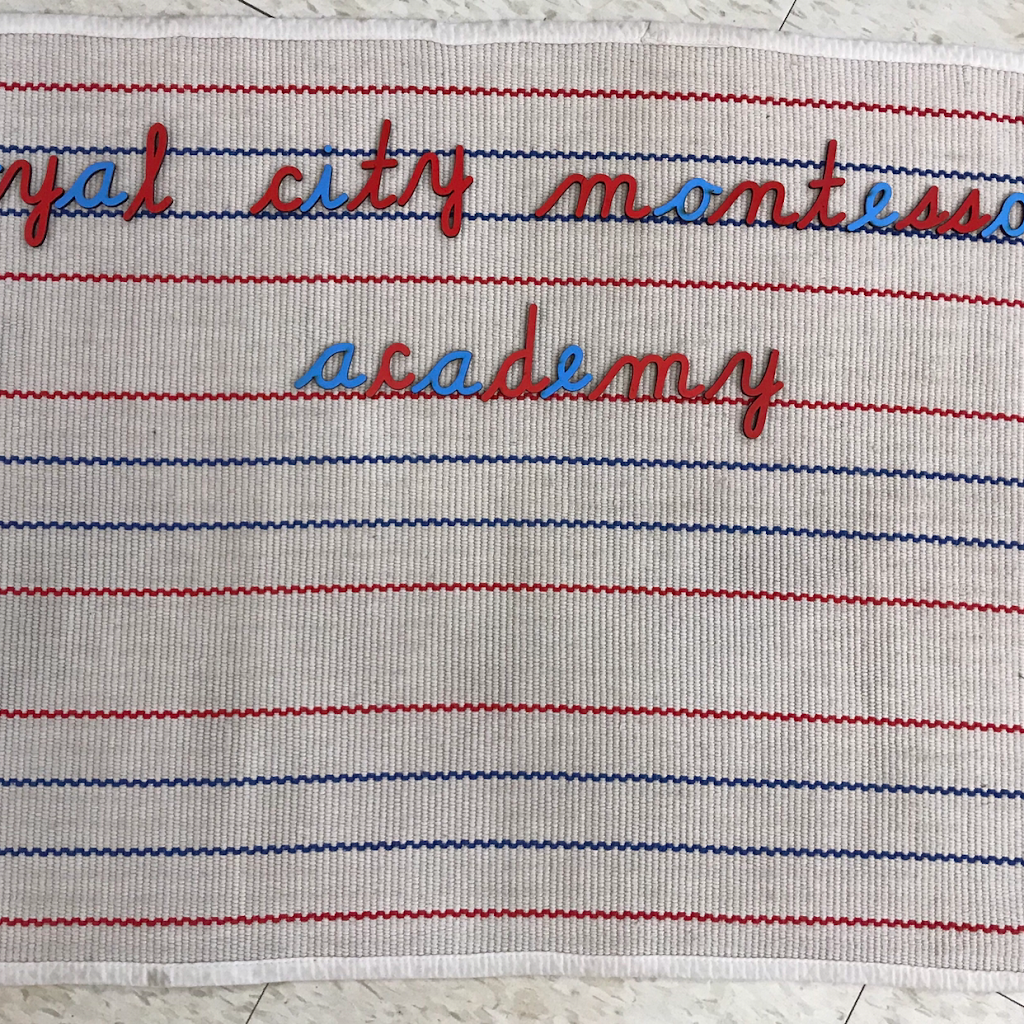 yal city montesso
academy